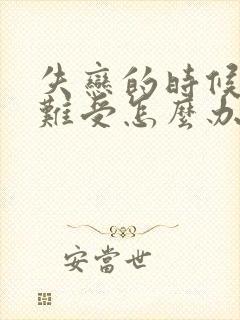 失戀的時候
難受怎麼办
安當世